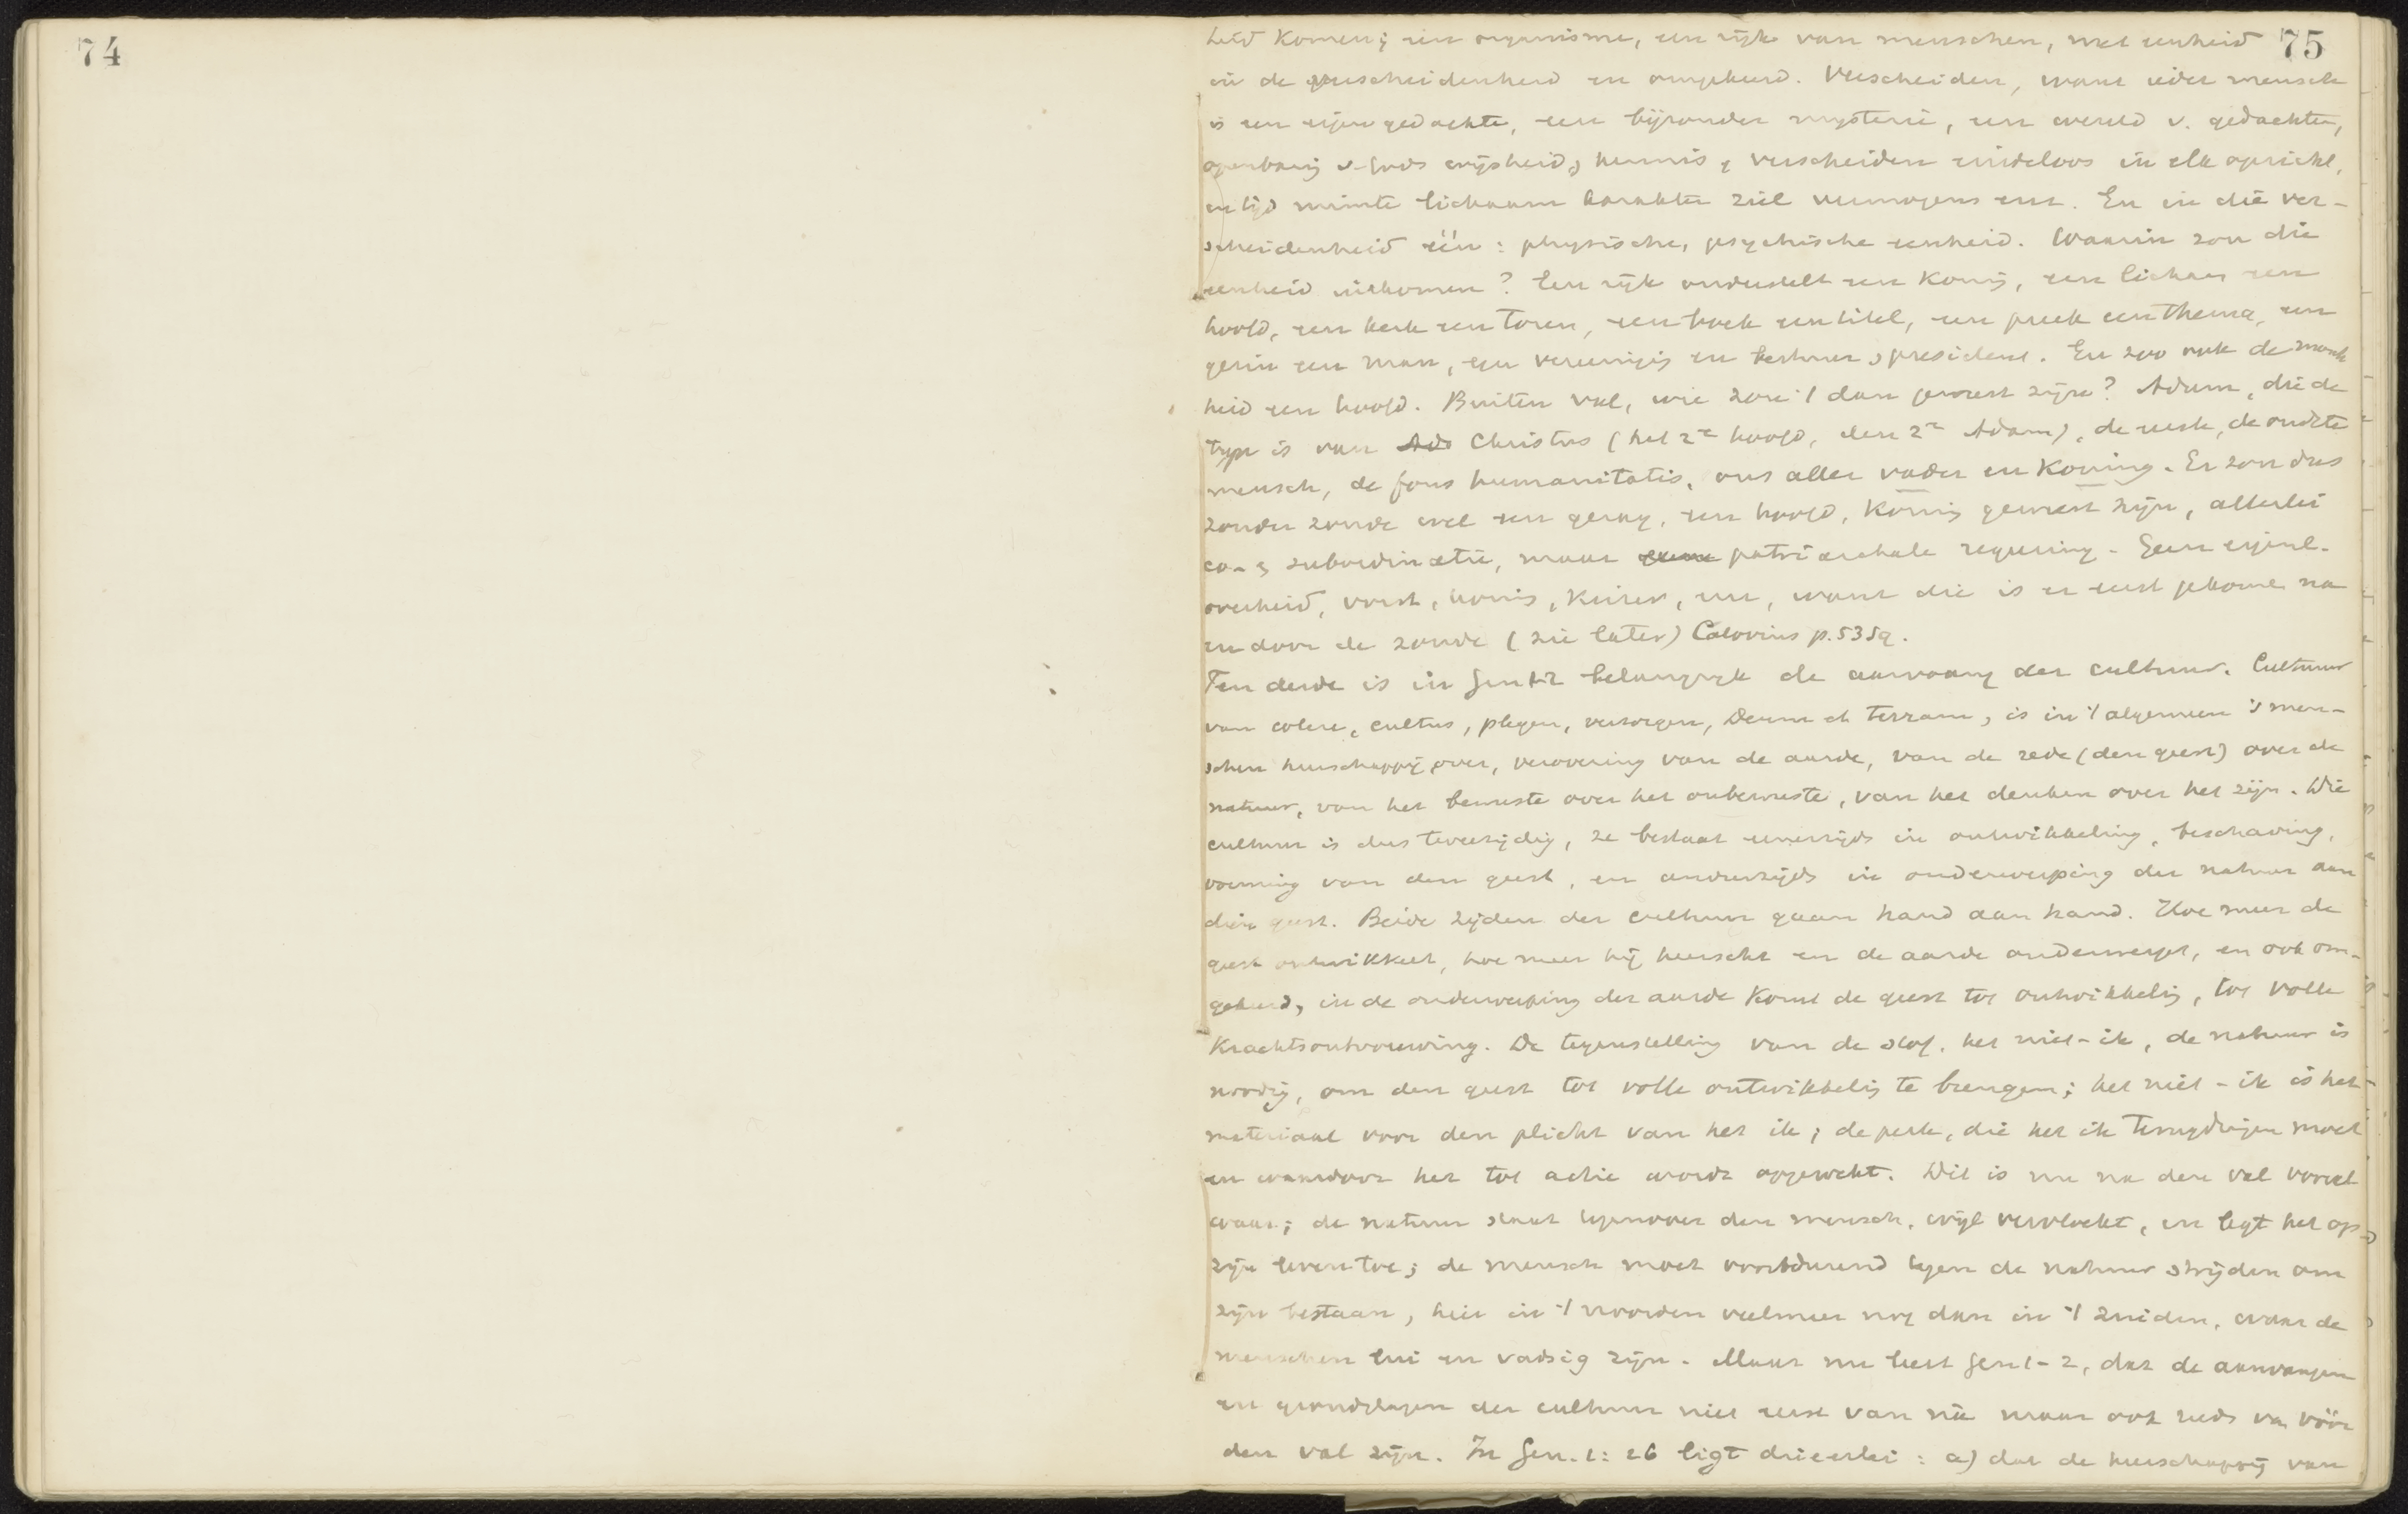 74
75
heid komen; een organisme, een rijk van menschen, met eenheid
in de verscheidenheid en omgekeerd. Verscheiden, want ieder mensch
is een eigen gedachte, een bijzonder mysterie, een wereld v. gedachten,
openbaring v. Gods wijsheid, kennis, verscheiden eindeloos in elk opzicht,
en tijd ruimte lichaam karakter ziel vermogens enz. En in die ver-
scheidenheid één: physische, psychische eenheid. Waarin zou die
eenheid uitkomen? Een rijk onderstelt een Koning, een lichaam een
hoofd, een kerk een toren, een boek een titel, een preek een thema, een
gezin een man, een vereeniging een bestuur, president. En zoo ook de mensch
heid een hoofd. Buiten val, wie zou 't dan geweest zijn? Adam, die de
type is van Ado Christus (het 2e hoofd, den 2n Adam), de eerste, de oudste
mensch, de fons humanitatis, ons aller vader en Koning. Er zou dus
zonder zonde wel een gezag, een hoofd, Koning geweest zijn, allerlei
co- & subordinatie, maar patriarchale regeering. Geen eigenl.
overheid, vorst, koning, Keizer, enz, want die is er eerst gekomen na
en door de zonde (zie later) Calovius p. 535q.
Ten derde is in Gen 1-2 belangrijk de aanvang der cultuur. Cultuur
van colere, cultus, plegen, verzorgen, Deum et terram, is in 't algemeen 's men-
schen heerschappij over, verovering van de aarde, van de rede (den geest) over de
natuur, van het bewuste over het onbewuste, van het denken over het zijn. Die
cultuur is dus tweezijdig, ze bestaat eenerzijds in ontwikkeling, beschaving,
vorming van den geest, en anderzijds in onderwerping der natuur aan
dien geest. Beide zijden der cultuur gaan hand aan hand. Hoe meer de
geest ontwikkelt, hoe meer hij heerscht en de aarde onderwerpt, en ook om-
gekeerd, in de onderwerping der aarde komt de geest tot ontwikkeling, tot volle
Krachtsontvouwing. De tegenstelling van de stof, het niet-ik, de natuur is
noodig, om den geest tot volle ontwikkeling te brengen; het niet-ik is het
materiaal voor den plicht van het ik; de perk, die het ik terugdringen moet
en waardoor het tot actie wordt opgewekt. Dit is nu na den val vooral
waar; de natuur staat tegenover den mensch, wijl vervloekt, en legt het op
zijn leven toe; de mensch moet voortdurend tegen de natuur strijden om
zijn bestaan, hier in 't noorden veelmeer nog dan in 't zuiden, waar de
menschen lui en vadsig zijn. Maar nu leert Gen 1-2, dat de aanvangen
en grondslagen der cultuur niet eerst van ná maar ook reeds van vóór
den val zijn. In Gen. 1: 26 ligt drieërlei: a) dat de heerschappij van